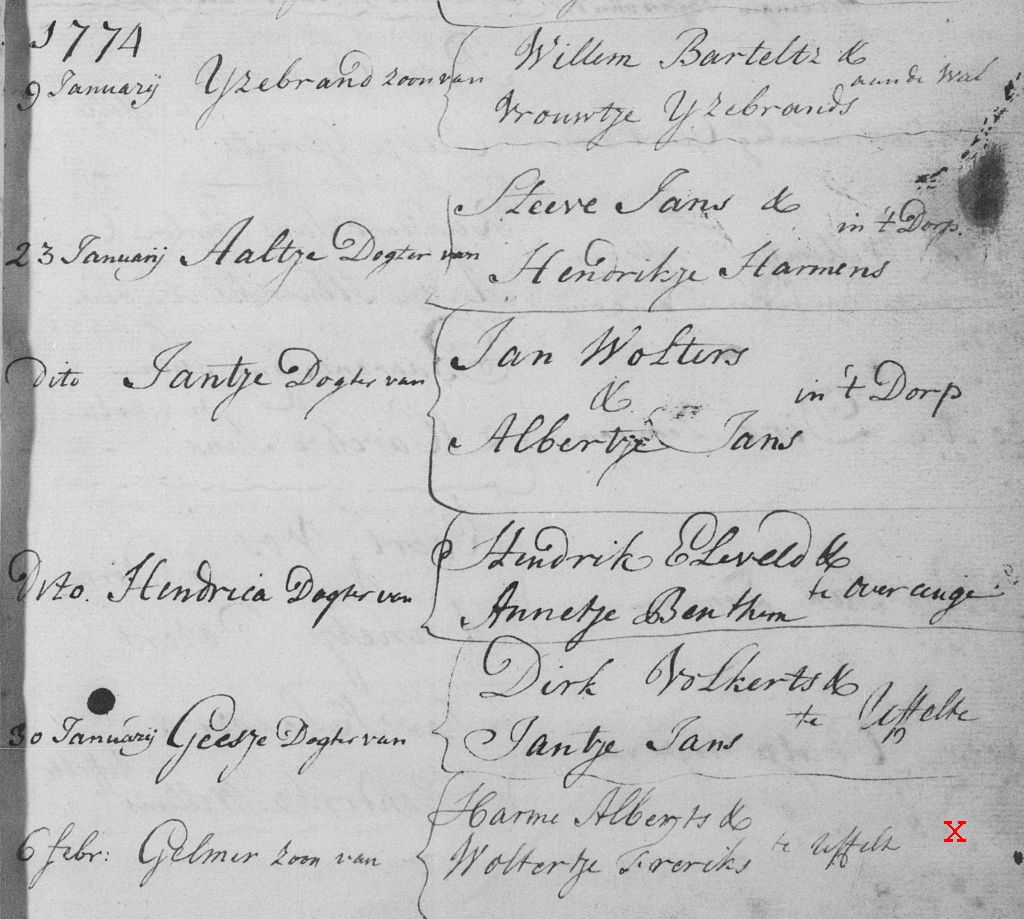 1774
9 Januarij Yzebrand zoon van Willem Barteltz &
Vrouwtje Yzebrands aan de Wal
23 Januarij Aaltje Dogter van Steeve Jans &
Hendrikje Harmens in 't Dorp.
Dito Jantje Dogter van Jan Wolters
&
Albertje Jans in 't Dorp
Dito. Hendrica Dogter van Hendrik Eleveld &
Annetje Benthem te Overcinge
30 Januarij Geesje Dogter van Dirk Volkerts &
Jantje Jans te Uffelte
6 febr: Gelmer zoon van Harme Alberts &
Woltertje Freriks te Uffelte
X